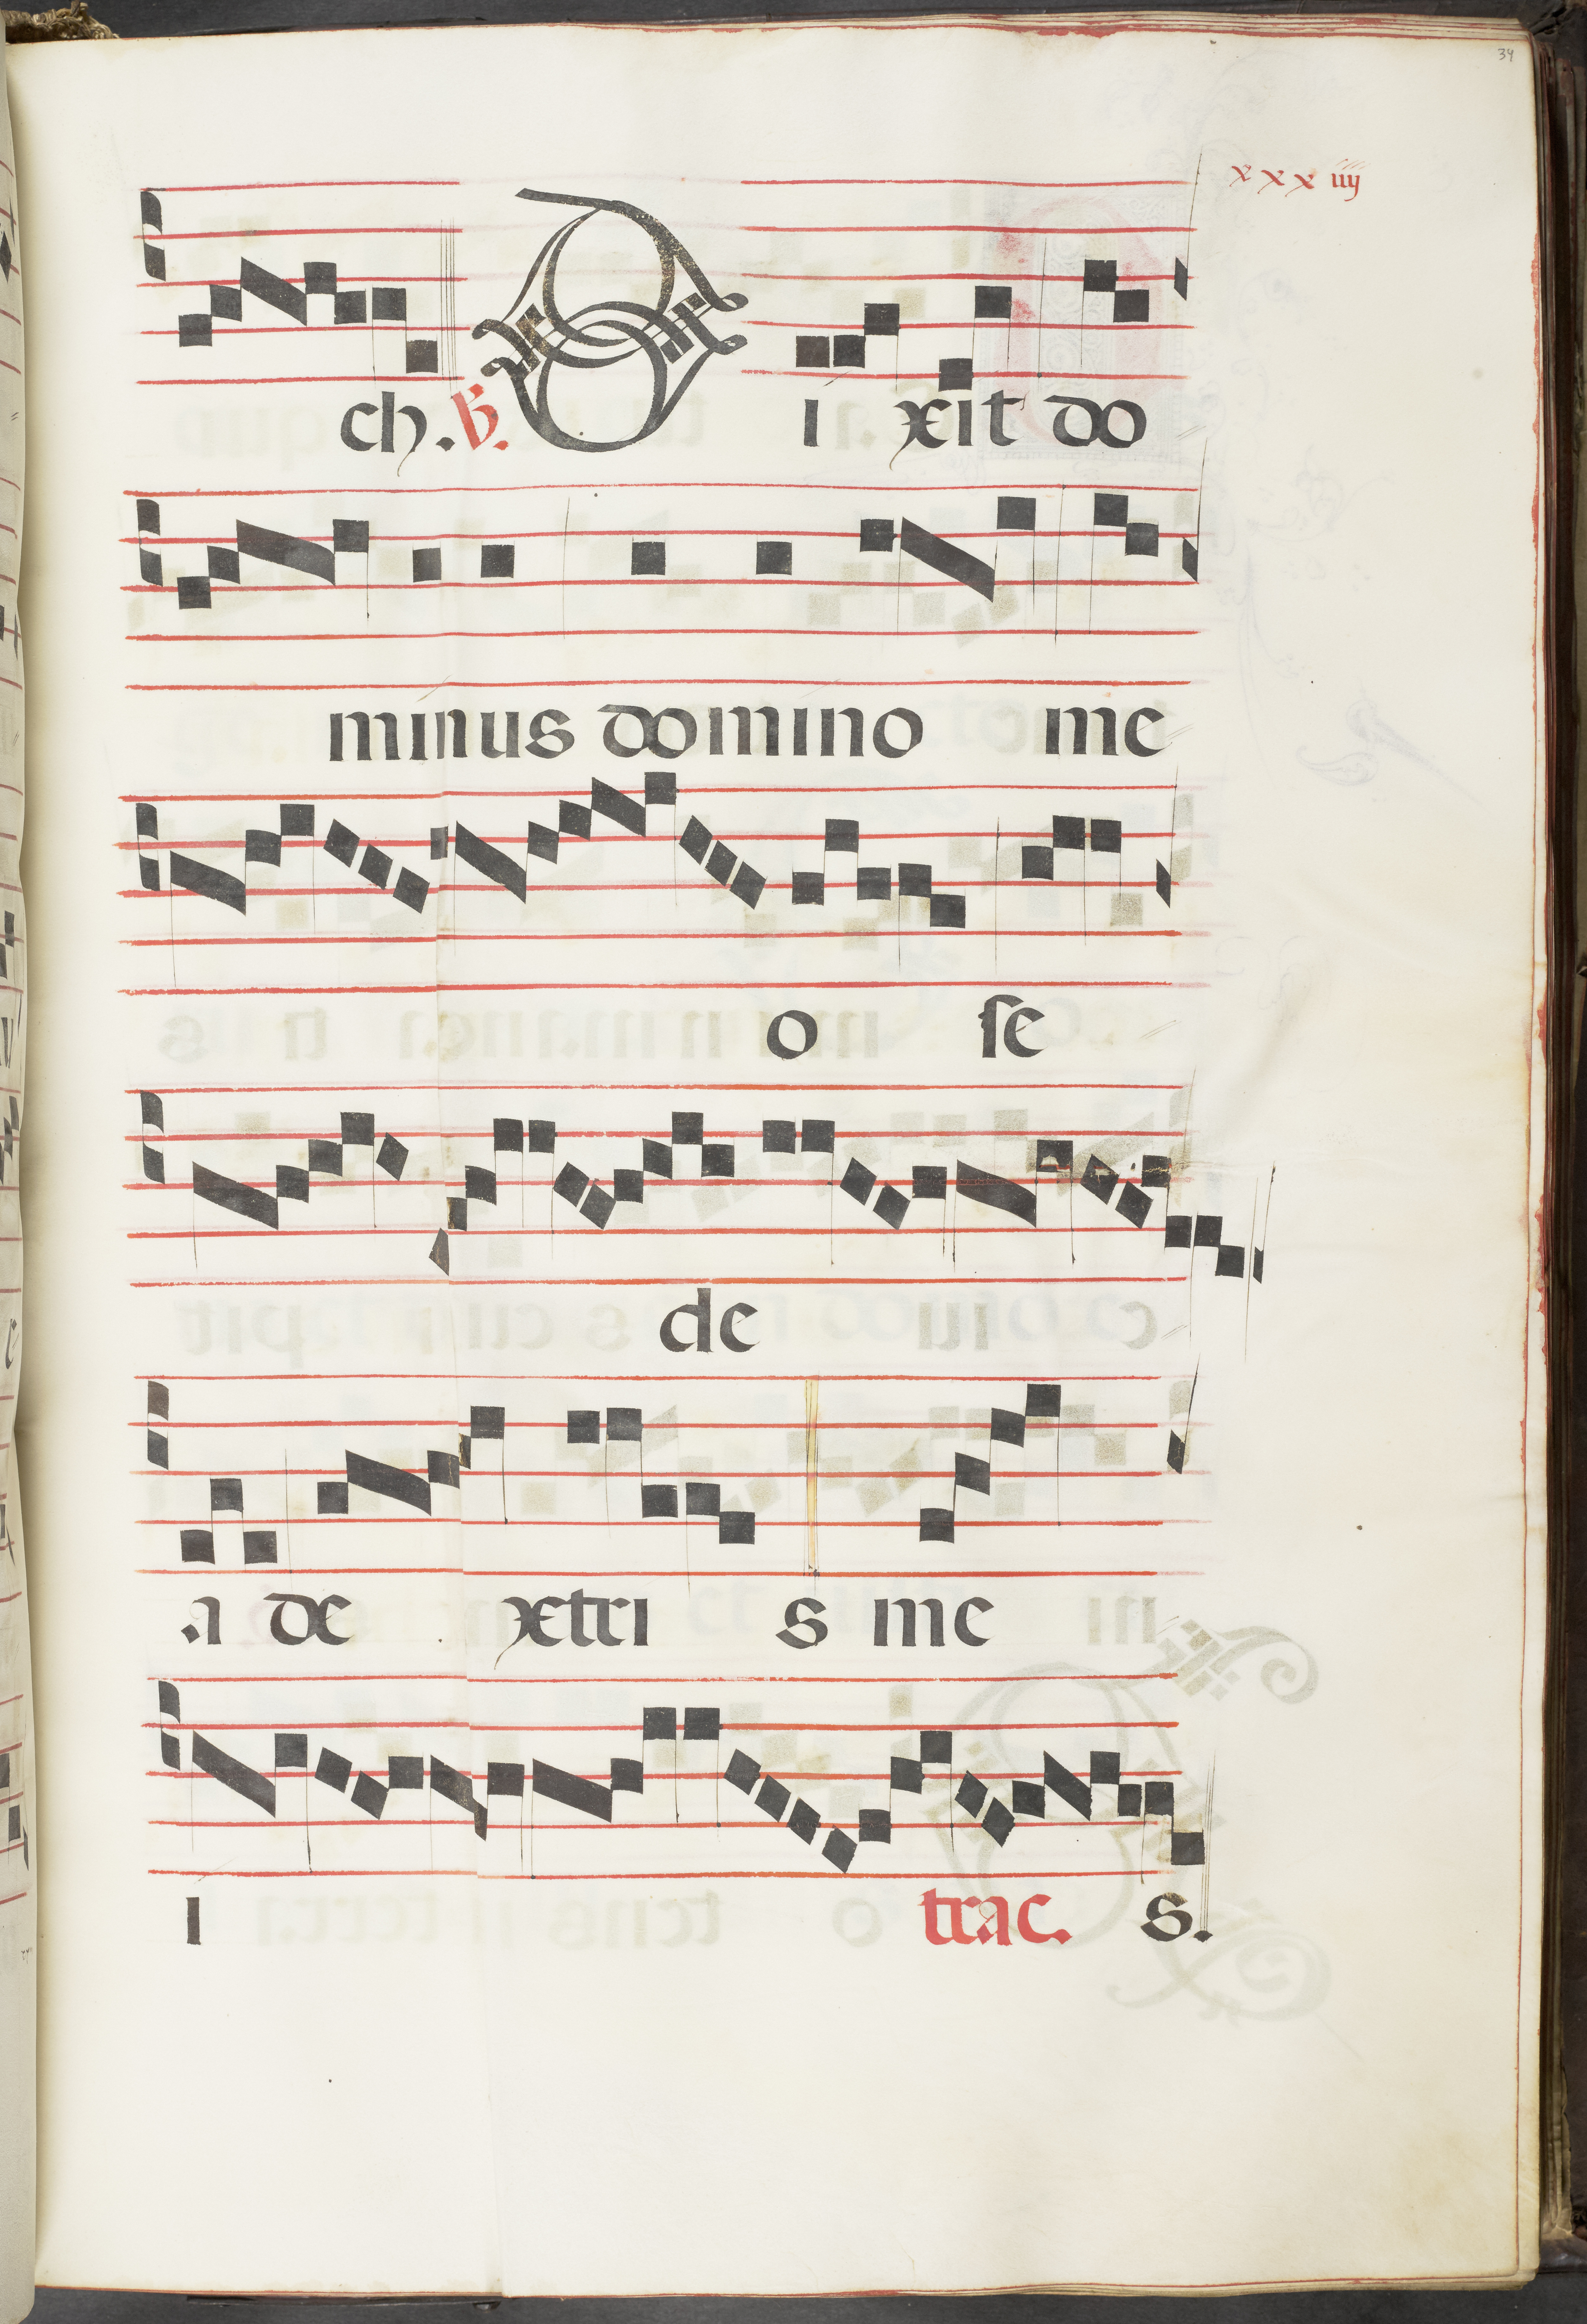 34
xxxiiij
ch. ℣. D i xit do
minus domino me
o se
de
a de xtri s me
i trac. s.